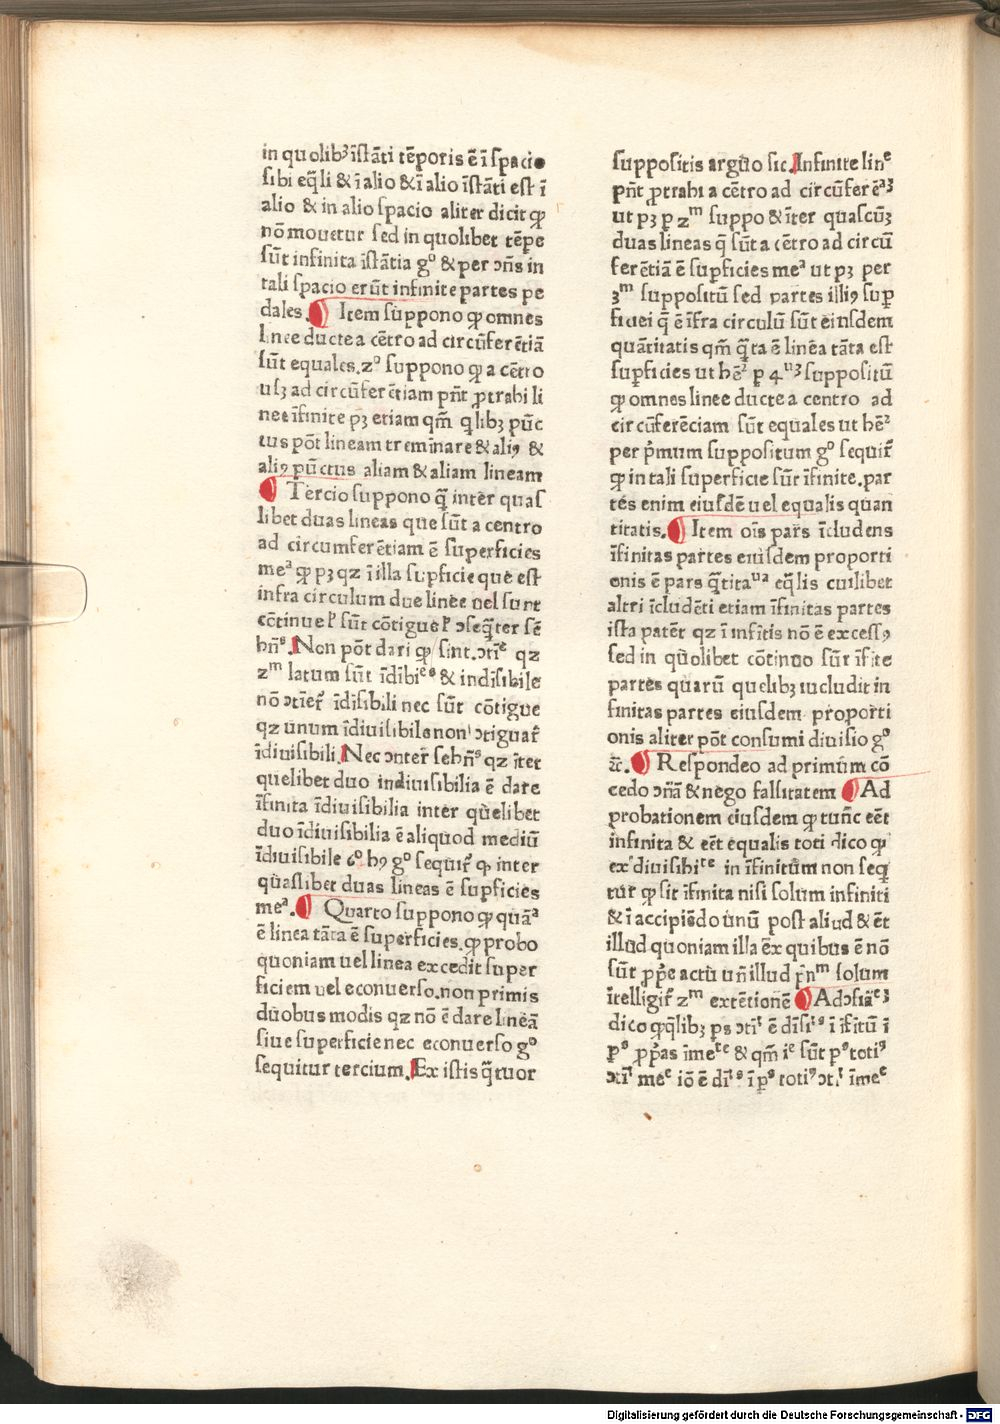 in quolibꝫ īstāti tēporis ē ī spacio
sibi eq̄li & ī alio & ī alio īstāti est ī
alio & in alio spacio aliter dicit ꝙ
nō mouetur sed in quolibet tēpe
sūt infinita īstātia gº & per ↄn̄s in
tali spacio erūt infinite partes pe
dales. Item suppono ꝙ omnes
linee ducte a cētro ad circūferētiā
sūt equales. zº suppono ꝙ a cētro
usꝫ ad circūferētiam pn̄t ꝓtrahi li
nee īfinite pꝫ etiam qm̄ q̄libꝫ pūc
tus pōt lineam treminare & aliꝰ &
aliꝰ pūctus aliam & aliam lineam
Tercio suppono q̄ inter quas
libet duas lineas que sūt a centro
ad circumferētiam ē superficies
meᵃ ꝙ pꝫ qz ī illa supficie que est
infra circulum due linee uel sunt
cōtinue ꝉ sūt cōtigue ꝉ ↄseq̄ter sē
hn̄ˢ. Non pōt dari ꝙ sint ↄtīᵉ qz
zᵐ latum sūt īdībiᵉˢ & indīsibile
nō ↄtīet̄ īdīsibili nec sūt cōtigue
qz unum īdiuisibile non ↄtiguat̄
īdiuisibili. Nec ↄnter̄ se hn̄ˢ qz īter
quelibet duo indiuisibilia ē dare
īfinita īdiuisibilia inter quelibet
duo īdiuisibilia ē aliquod mediū
īdiuisibile 6º hꝰ gº sequit̄ ꝙ inter
quaslibet duas lineas ē supficies
meᵃ. Quarto suppono ꝙ quāᵃ
ē linea tāta ē superficies. ꝙ probo
quoniam uel linea excedit super
ficiem uel econuerso. non primis
duobus modis qz nō ē dare lineā
siue superficie nec econuerso gº
sequitur tercium. Ex istis q̄tuor
suppositis arguo sic. Infinite linᵉ
pn̄t ꝓtrahi a cētro ad circūferēᵃꝫ
ut pꝫ p zᵐ suppo & īter quascūꝫ
duas lineas q̄ sūt a cētro ad circū
ferētiā ē supficies meᵃ ut pꝫ per
3ᵐ suppositū sed partes illiꝰ sup
ficiei q̄ ē īfra circulū sūt eiusdem
quātitatis qm̄ q̄ta ē linea tāta est
supficies ut hēᶻ p 4ᵘꝫ suppositū
ꝙ omnes linee ducte a centro ad
circūferēciam sūt equales ut hēᶻ
per p̄mum suppositum gº sequit̄
ꝙ in tali superficie sūt īfinite. par
tes enim eiusdē uel equalis quan
titatis. Item oīs pars īcludens
īfinitas partes eiusdem proporti
onis ē pars q̄titaᵘᵃ eq̄lis cuilibet
altri īcludēti etiam īfinitas partes
ista patēt qz ī infītis nō ē excessꝰ
sed in quolibet cōtinuo sūt īfite
partes quarū quelibꝫ includit in
finitas partes eiusdem proporti
onis aliter pōt consumi diuisio gº
⁊c. Respondeo ad primum cō
cedo ↄn̄ā & nego falsitatem Ad
probationem eiusdem ꝙ tunc eēt
infinita & eēt equalis toti dico ꝙ
ex diuisibiᵗᵉ in īfinitum non seq̄
tur ꝙ sit īfinita nisi solum infiniti
& ī accipiēdo unū post aliud & ēt
illud quoniam illa ēx quibus ē nō
sūt ꝓpe actu un̄ illud p̄nᵐ solum
ītelligit̄ zᵐ extētionē Ad ↄfiāᵉꝫ
dico ꝙ q̄libꝫ ps ↄtīˡ ē dīsiˡˢ ī īfitū ī
pˢ ꝓp̄as īmeᵗᵉ & qm̄ iᵉ sūt pˢ totiꝰ
ↄtīˡ meᵉ iō ē dīˡˢ ī pˢ totiꝰ ↄt.ˡ īmeᵉ
Digitalisierung gefördert durch die Deutsche Forschungsgemeinschaft - DFG